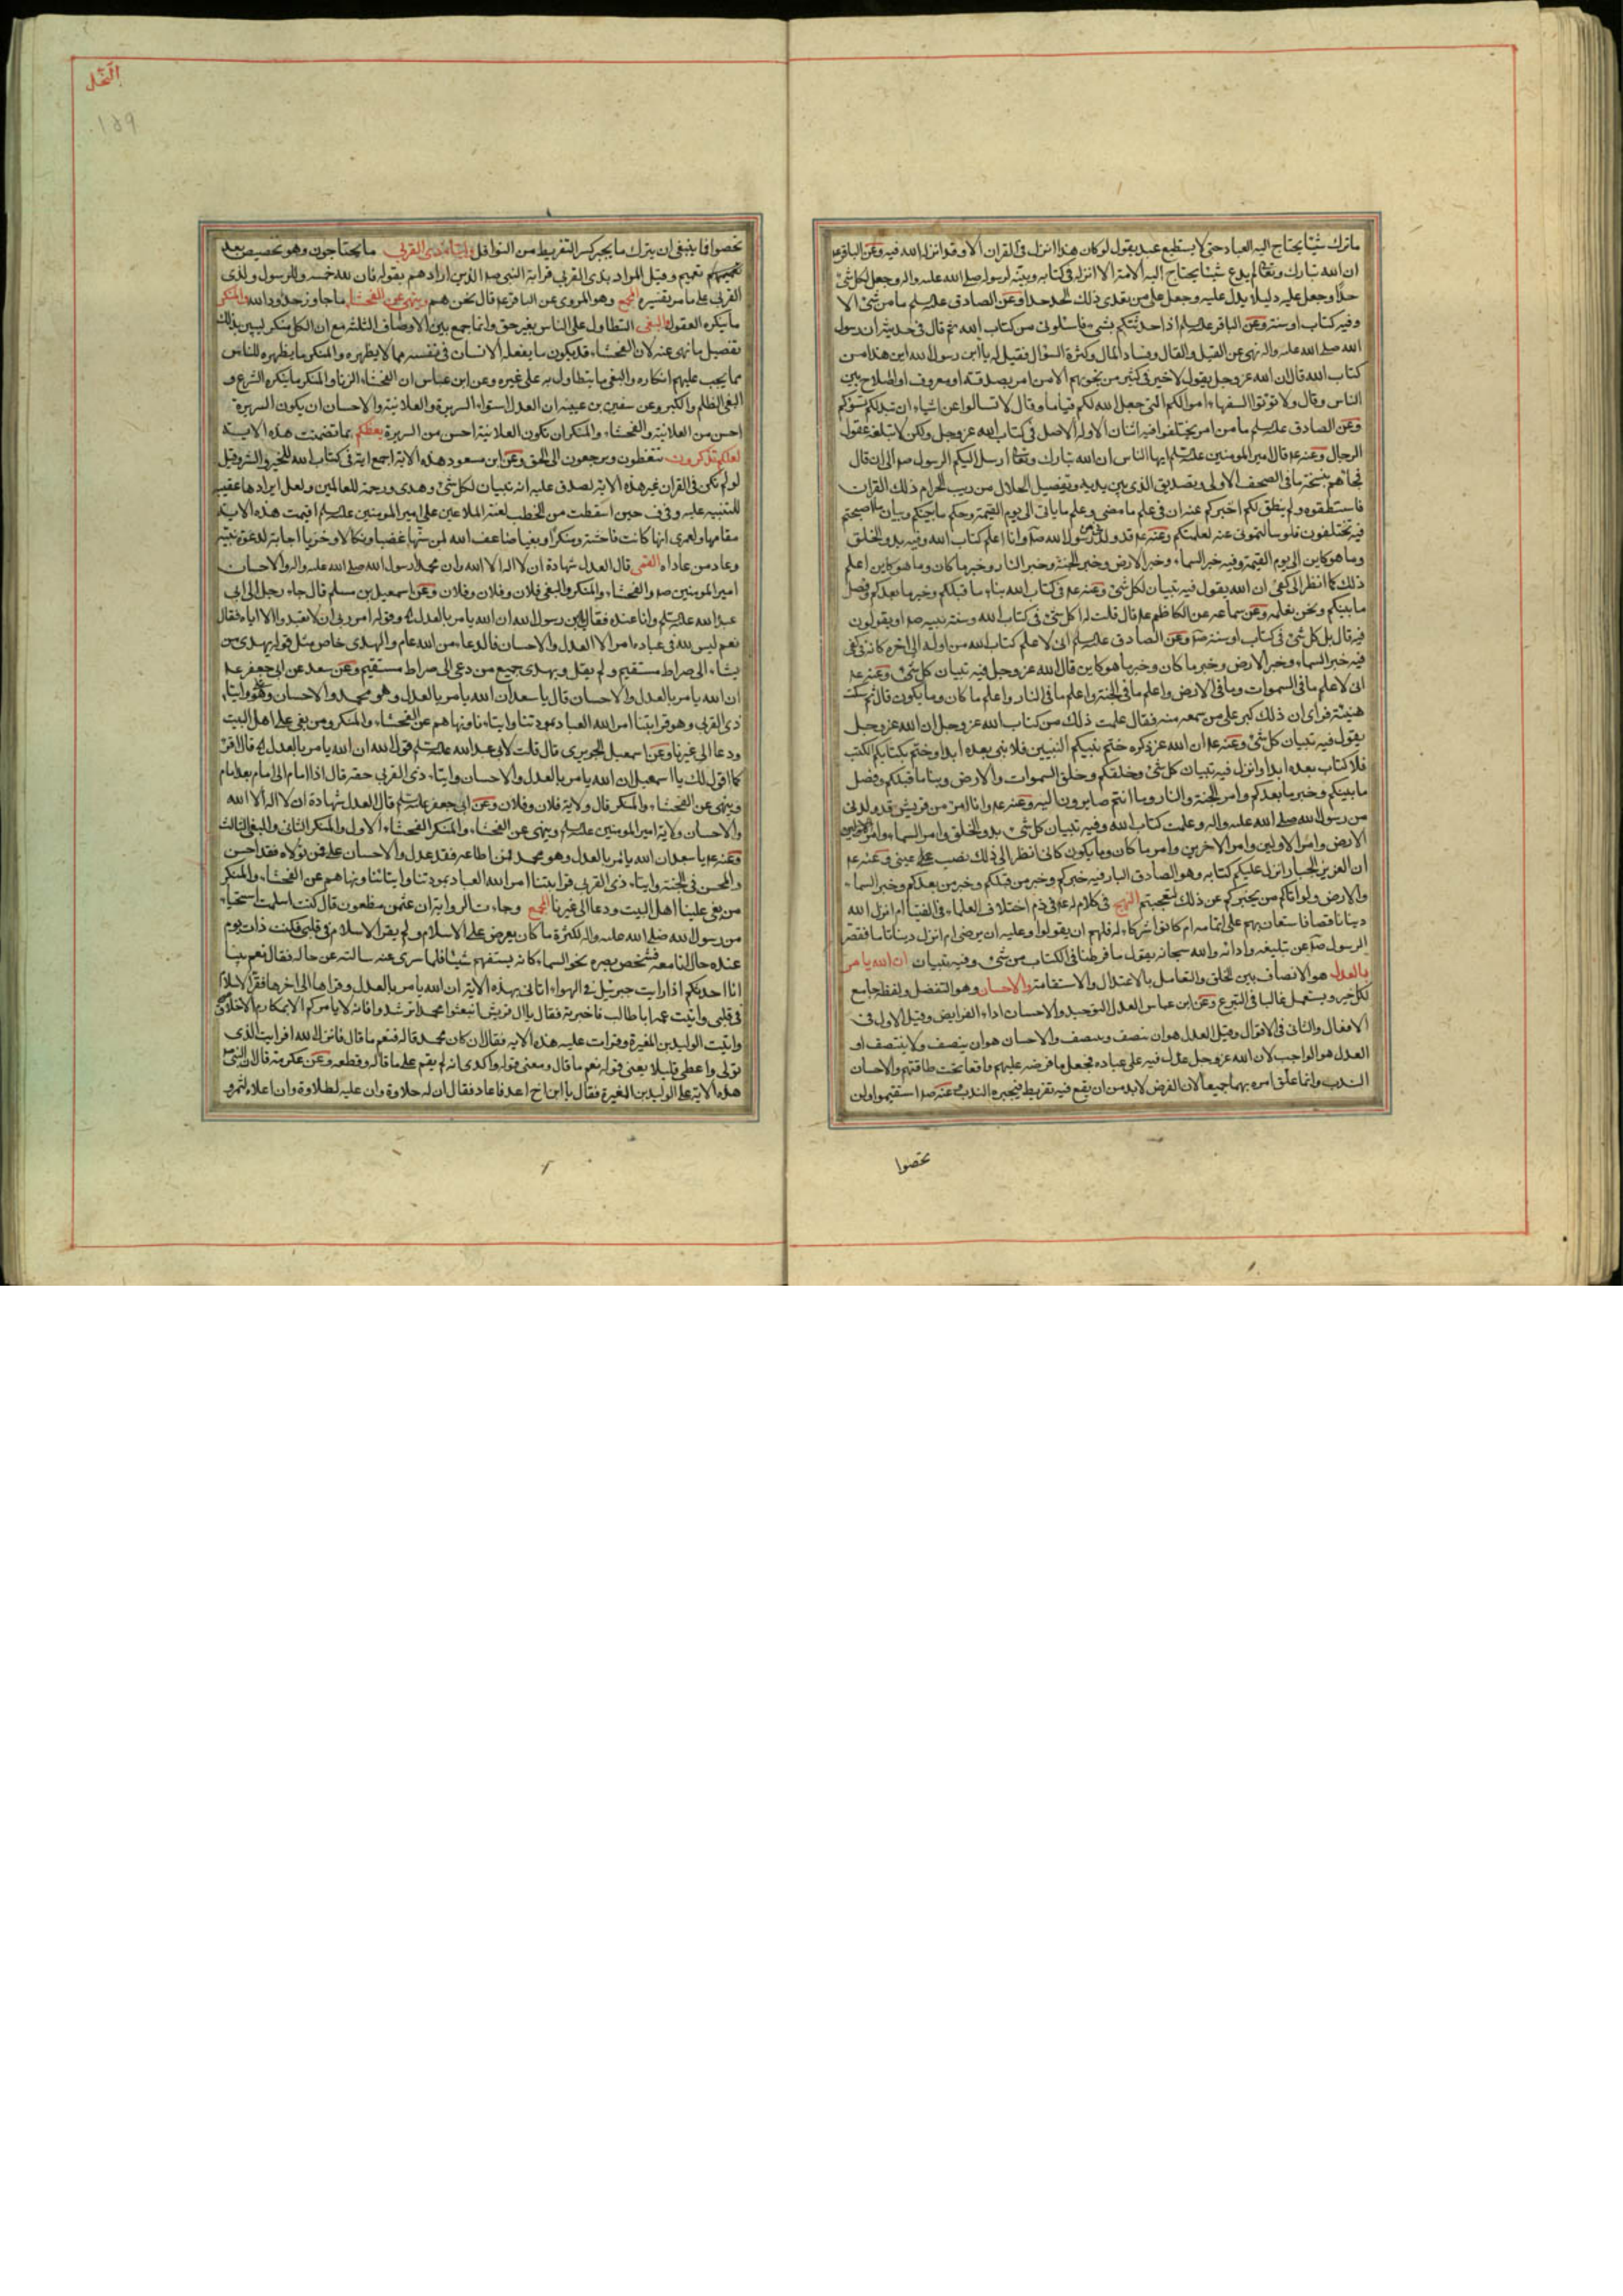 ما ترك شيئا يحتاج اليه العباد حتى لا يستطيع عبد يقول لو كان هذا انزل فى القران الا وقد انزل الله فيه وعن الباقر ع
ان الله تبارك وتعالى لم يدع شيئا يحتاج اليه الامة الا انزله فى كتابه وبينه لرسوله صلى الله عليه واله وجعل لكل شئ
حدا وجعل عليه دليلا يدل عليه وجعل على من يعدى ذلك الحد حدا وعن الصادق عليه سلم ما من شئ الا
وفيه كتاب او سنة وعن الباقر عليه سلم اذا حدثتكم بشئ فاسئلونى من كتاب الله ثم قال فى حديثه ان رسول
الله صلى الله عليه واله نهى عن القيل والقال وفساد المال وكثرة السؤال فقيل له يا ابن رسول الله اين هذا من
كتاب الله قال ان الله عز وجل يقول لا خير فى كثير من نجويهم الا من امر بصدقة او معروف او اصلاح بين
الناس وقال ولا تؤتوا السفهاء اموالكم التى جعل الله لكم قياما وقال لا تسالوا عن اشياء ان تبد لكم تسؤكم
وعن الصادق عليه سلم ما من امر يختلف فيه اثنان الا وله الاصل فى كتاب الله عز وجل ولكن لا تبلغه عقول
الرجال وعنه ع قال امير المومنين عليه سلم ايها الناس ان الله تبارك وتعالى ارسل اليكم الرسول ص الى ان قال
فجاءهم بنسخة ما فى الصحف الاولى وتصديق الذى بين يديه وتفصيل الحلال من ريب الحرام ذلك القران
فاستنطقوه ولم ينطق لكم اخبركم عنه ان فى علم ما مضى وعلم ما ياتى الى يوم القيمة وحكم ما بينكم وبيان ما اصبحتم
فيه تختلفون فلو سالتمونى عنه لعلمتكم وعنه ع قد ولدنى رسول الله ص وانا اعلم كتاب الله وفيه بدو الخلق
وما هو كاين الى يوم القيمة وفيه خبر السماء وخبر الارض وخبر الجنة وخبر النار وخبر ما كان وما هو كاين اعلم
ذلك كما انظر الى كفى ان الله يقول فيه تبيان لكل شئ وعنه ع فى كتاب الله بناء ما قبلكم وخبر ما بعدكم وفصل
ما بينكم ونحن نعلمه وعن سماعه عن الكاظم ع قال قلت له اكل شئ فى كتاب الله وسنة نبيه ص او يقولون
فيه قال بل كل شئ فى كتاب او سنة ص وعن الصادق عليه سلم انى لاعلم كتاب الله من اوله الى اخره كانه فى كفى
فيه خبر السماء وخبر الارض وخبر ما كان وخبر ما هو كاين قال الله عز وجل فيه تبيان كل شئ وعنه ع
انى لاعلم ما فى السموات وما فى الارض واعلم ما فى الجنة واعلم ما فى النار واعلم ما كان وما يكون قال ثم سكت
هنيئة فراى ان ذلك كبر على من سمعه منه فقال علمت ذلك من كتاب الله عز وجل ان الله عز وجل
يقول فيه تبيان كل شئ وعنه ع ان الله عز ذكره ختم بنبيكم النبيين فلا نبى بعده ابدا وختم بكتابكم الكتب
فلا كتاب بعده ابدا وانزل فيه تبيان كل شئ وخلقكم وخلق السموات والارض وبناء ما قبلكم وفصل
ما بينكم وخبر ما بعدكم وامر الجنة والنار وما انتم صايرون اليه وعنه ع وانا امرؤ من قريش قد ولدنى
من رسول الله صلى الله عليه واله وعلمت كتاب الله وفيه تبيان كل شئ بدو الخلق وامر السماء وامر
الارض وامر الاولين وامر الاخرين وامر ما كان وما يكون كانى انظر الى ذلك نصب عينى وعنه ع
ان العزيز الجبار انزل عليكم كتابه وهو الصادق البار فيه خبركم وخبر من قبلكم وخبر من بعدكم وخبر السماء
والارض ولو اتاكم من يخبركم عن ذلك لتعجبتم النهج فى كلام له ع فى ذم اختلاف العلماء فى الفتيا ام انزل الله
دينا ناقصا فاستعان بهم على اتمامه ام كانوا شركاء له فلهم ان يقولوا وعليه ان يرضى ام انزل دينا تاما فقصر
الرسول ص عن تبليغه وادائه والله سبحانه يقول ما فرطنا فى الكتاب من شئ وفيه تبيان ان الله يامر
بالعدل هو الانصاف بين الخلق والتعامل بالاعتدال والاستقامة والاحسان وهو التفضل ولفظ جامع
لكل خير ويستعمل غالبا فى التبرع وعن ابن عباس العدل التوحيد والاحسان اداء الفرايض وقيل الاول فى
الافعال والثانى فى الاقوال وقيل العدل هو ان ينصف وينتصف والاحسان هو ان ينصف ولا ينتصف او
العدل هو الواجب لان الله عز وجل عدل فيه على عباده فجعل ما فرضه عليهم واقعا تحت طاقتهم والاحسان
الندب وانما علق امره بهما جميعا لان الفرض لا بد من ان يقع فيه تفريط فيجبره الندب عنه ص استقيموا ولن
تحصوا
النحل
١٥٩
تحصوا فما ينبغى ان يترك ما يجبر كسر التفريط من النوافل وايتاء ذى القربى ما يحتاجون وهو تخصيص بعد
تعميم وقيل المراد بذى القربى قرابة النبى ص الذين ارادهم بقوله فان لله خمسه وللرسول ولذى
القربى على ما مر تفسيره المجمع وهو المروى عن الباقر ع قال نحن هم وينهى عن الفحشاء ما جاوز حدود الله والمنكر
ما ينكره العقول والبغى التطاول على الناس بغير حق وانما جمع بين الاوصاف الثلثة مع ان الكل منكر ليبين بذلك
تفصيل ما نهى عنه لان الفحشاء قد يكون ما يفعله الانسان فى نفسه مما لا يظهره والمنكر ما يظهره للناس
مما يجب عليهم انكاره والبغى ما يتطاول به على غيره وعن ابن عباس ان الفحشاء الزنا والمنكر ما ينكره الشرع و
البغى الظلم والكبر وعن سفين بن عيينه ان العدل استواء السريرة والعلانية والاحسان ان يكون السريرة
احسن من العلانية والفحشاء والمنكر ان تكون العلانية احسن من السريرة يعظكم بما تضمنت هذه الاية
لعلكم تذكرون تتعظون وترجعون الى الحق وعن ابن مسعود هذه الاية اجمع اية فى كتاب الله للخير والشر وقيل
لو لم تكن فى القران غير هذه الاية لصدق عليه انه تبيان لكل شئ وهدى ورحمة للعالمين ولعل ايرادها عقيب
للتنبيه عليه وفى حين اسقطت من الخطب لعنة الملاعين على امير المومنين عليه سلم اقيمت هذه الاية
مقامها ولعمرى انها كانت فاحشة ومنكرا وبغيا ضاعف الله لمن سنها غضبا ونكالا وخزيا اجابة لدعوة نبيه
وعاد من عاداه القمى قال العدل شهادة ان لا اله الا الله وان محمدا رسول الله صلى الله عليه واله والاحسان
امير المومنين ص والفحشاء والمنكر والبغى فلان وفلان وفلان وعن اسمعيل بن مسلم قال جاء رجل الى ابى
عبد الله عليه سلم وانا عنده فقال يا بن رسول الله ان الله يامر بالعدل وقوله امر ربى ان لا تعبدوا الا اياه فقال
نعم ليس لله فى عباده امر الا العدل والاحسان فالدعاء من الله عام والهدى خاص مثل قوله يهدى من
يشاء الى صراط مستقيم ولم يقل ويهدى جميع من دعى الى صراط مستقيم وعن سعد عن ابى جعفر ع
ان الله يامر بالعدل والاحسان قال يا سعد ان الله يامر بالعدل وهو محمد والاحسان وهو على وايتاء
ذى القربى وهو قرابتنا امر الله العباد بمودتنا وايتاءنا ونهاهم عن الفحشاء والمنكر ومن بغى على اهل البيت
ودعا الى غيرنا وعن اسمعيل الجريرى قال قلت لابى عبد الله عليه سلم قول الله ان الله يامر بالعدل قال اقرا
كما اقول لك يا اسمعيل ان الله يامر بالعدل والاحسان وايتاء ذى القربى حقه قال اذا امام الى امام بعد امام
وينهى عن الفحشاء والمنكر قال ولاية فلان وفلان وعن ابى جعفر عليه سلم قال العدل شهادة ان لا اله الا الله
والاحسان ولاية امير المومنين عليه سلم وينهى عن الفحشاء والمنكر الفحشاء الاول والمنكر الثانى والبغى الثالث
وعنه ع يا سعد ان الله يامر بالعدل وهو محمد فمن اطاعه فقد عدل والاحسان على فمن تولاه فقد احسن
والمحسن فى الجنة وايتاء ذى القربى قرابتنا امر الله العباد بمودتنا وايتائنا ونهاهم عن الفحشاء والمنكر
من بغى علينا اهل البيت ودعا الى غيرنا المجمع وجاءت الرواية ان عثمن بن مظعون قال كنت اسلمت استحياء
من رسول الله صلى الله عليه واله لكثرة ما كان يعرض على الاسلام ولم يقر الاسلام فى قلبى فكنت ذات يوم
عنده حال تامله فشخص بصره نحو السماء كانه يستفهم شيئا فلما سرى عنه سالته عن حاله فقال نعم بينا
انا احدثكم اذ رايت جبرئيل فى الهواء اتانى بهذه الاية ان الله يامر بالعدل وقراها الى اخرها فقر الاسلام
فى قلبى واتيت عمه ابا طالب فاخبرته فقال يا ال قريش اتبعوا محمدا ترشدوا فانه لا يامركم الا بمكارم الاخلاق
واتيت الوليد بن المغيرة وقرات عليه هذه الاية فقال ان كان محمد قاله فنعم ما قال فانزل الله افرايت الذى
تولى واعطى قليلا يعنى قوله نعم ما قال ومعنى قوله واكدى انه لم يقم على ما قاله وقطعه وعن عكرمة قال ان النبى
هذه الاية على الوليد بن المغيرة فقال يا ابن اخ اعد فاعاد فقال ان له حلاوة وان عليه لطلاوة وان اعلاه لمثمر و